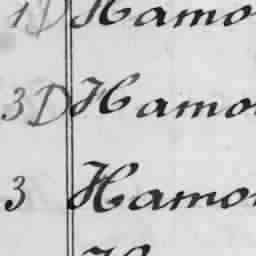 1D Hamo
3D Hamo
3 Hamo